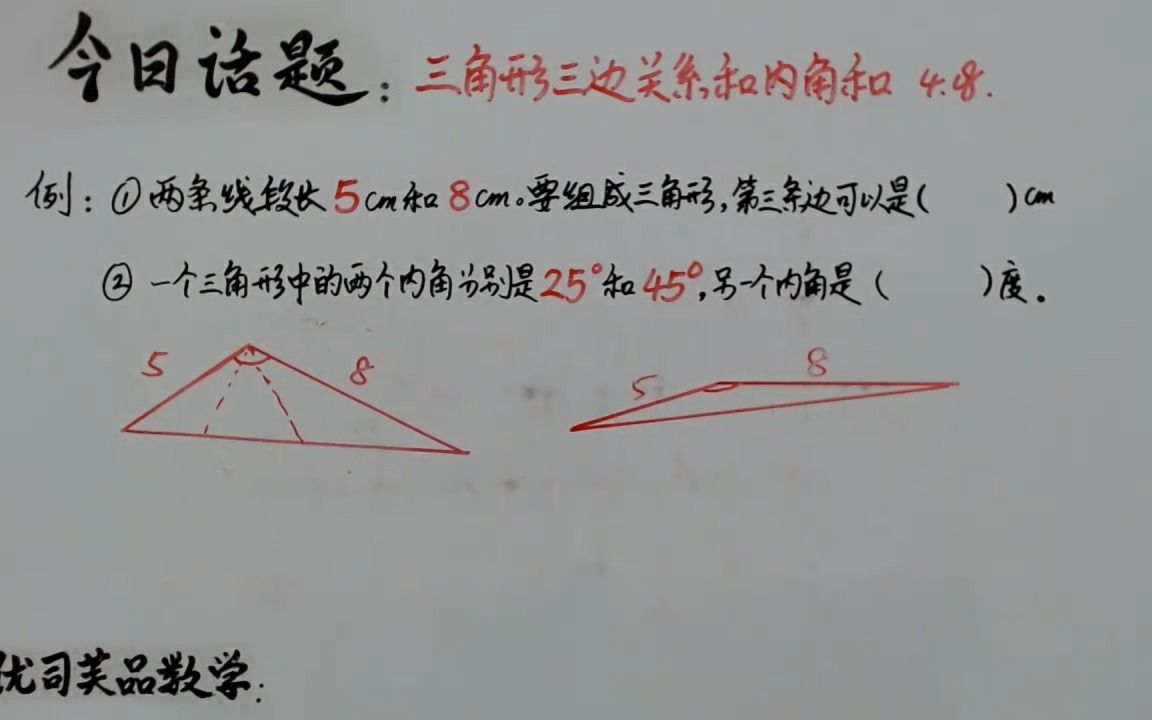 今日话题：三角形三边关系和内角和 4.8.
例：①两条线段长5cm和8cm。要组成三角形，第三条边可以是（  ）cm
②一个三角形中的两个内角分别是25°和45°，另一个内角是（  ）度。
5 8
5 8
优司芙品数学：